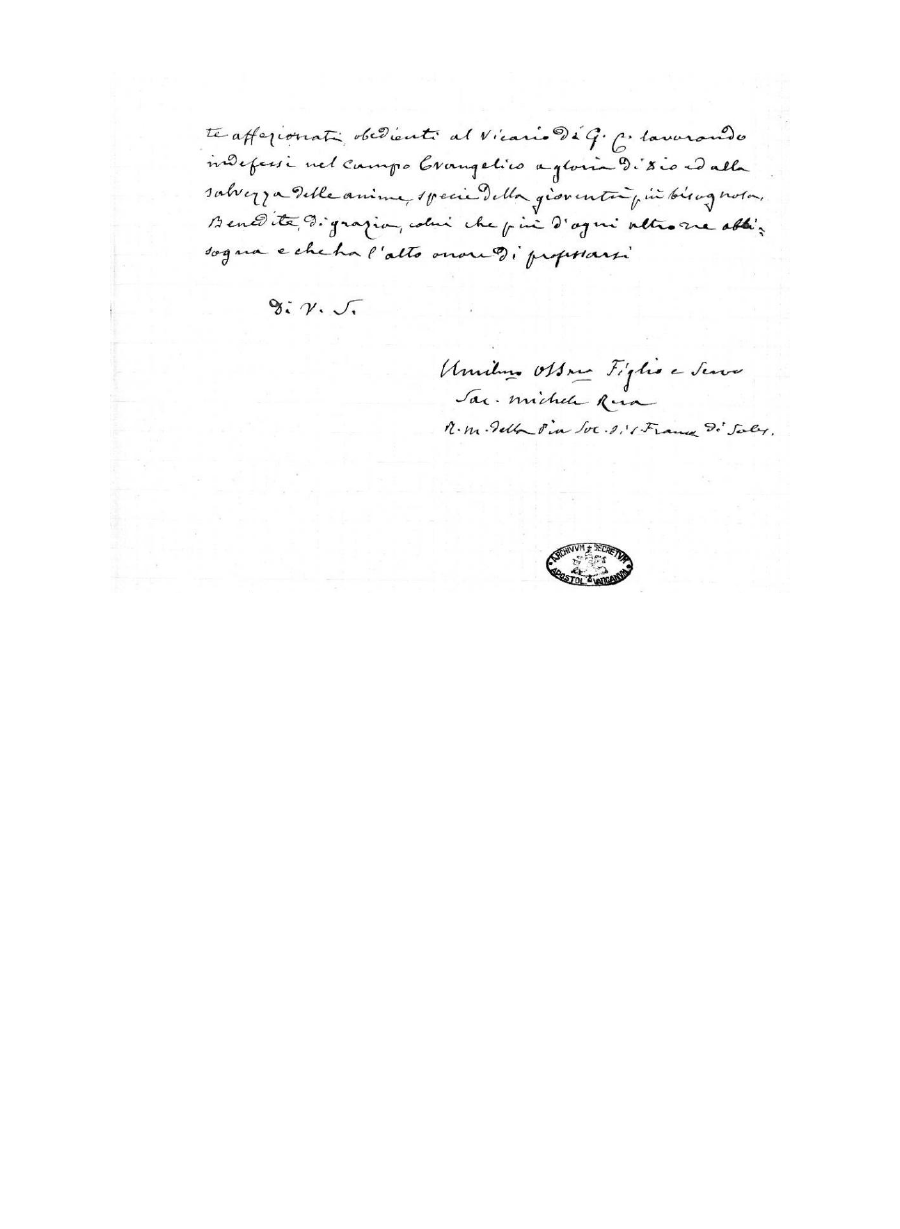 te affezionati, obedienti al Vicario di G. C. lavorando
indefessi nel campo Evangelico a gloria di Dio ed alla
salvezza delle anime, specie della gioventù più bisognosa.
Benedite, di grazia, colui che più d'ogni altro ne abbi=
sogna e che ha l'alto onore di professarsi
Di V. S.
Umilmo Obbmo Figlio e Servo
Sac. Michele Rua
R. M. della Pia Soc. di S. Franc. di Sales.
ARCHIVVM SECRETVM
APOSTOL. VATICANVM